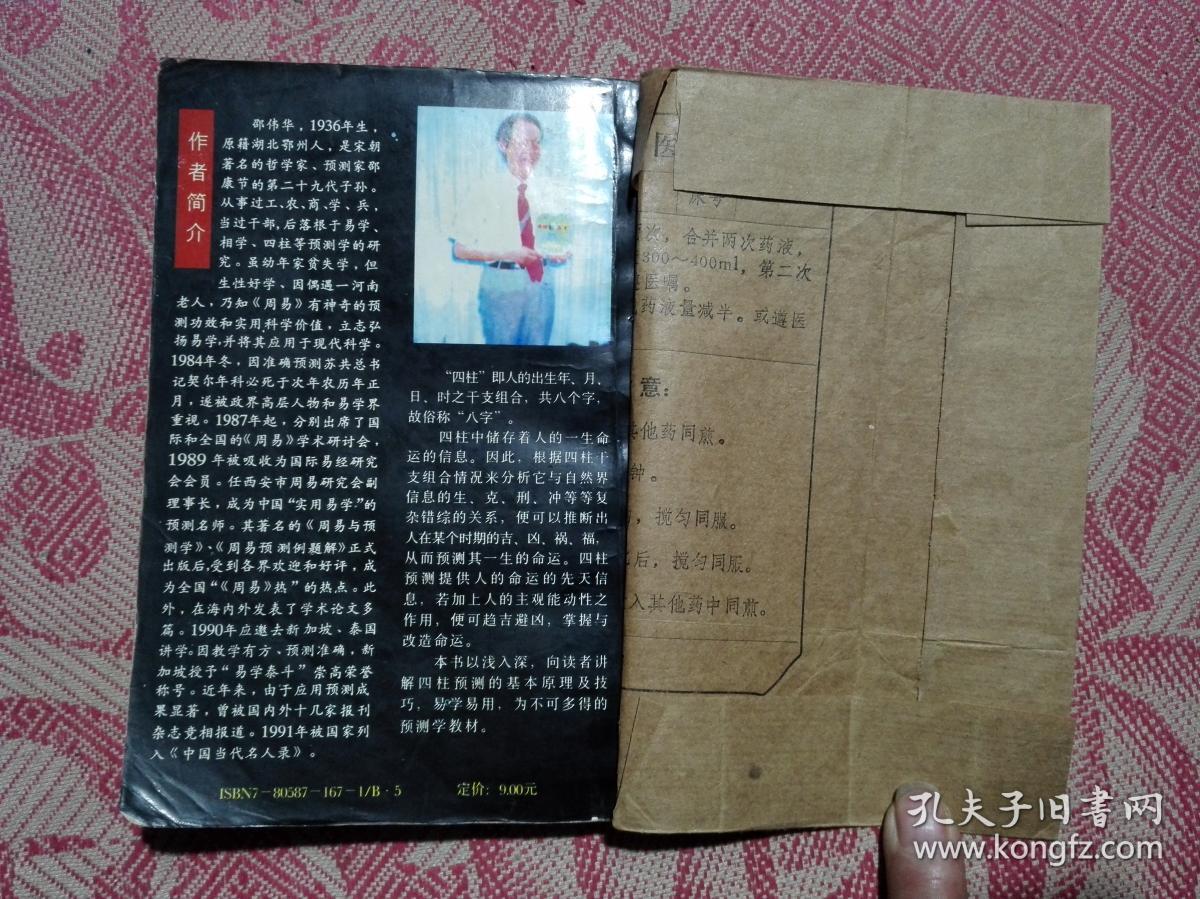 作者简介
邵伟华，1936年生，
原籍湖北鄂州人，是宋朝
著名的哲学家、预测家邵
康节的第二十九代子孙。
从事过工、农、商、学、兵，
当过干部，后落根于易学、
相学、四柱等预测学的研
究。虽幼年家贫失学，但
生性好学、因偶遇一河南
老人，乃知《周易》有神奇的预
测功效和实用科学价值，立志弘
扬易学，并将其应用于现代科学。
1984年冬，因准确预测苏共总书
记契尔年科必死于次年农历年正
月，遂被政界高层人物和易学界
重视。1987年起，分别出席了国
际和全国的《周易》学术研讨会，
1989年被吸收为国际易经研究
会会员。任西安市周易研究会副
理事长，成为中国“实用易学”的
预测名师。其著名的《周易与预
测学》、《周易预测例题解》正式
出版后，受到各界欢迎和好评，成
为全国“《周易》热”的热点。此
外，在海内外发表了学术论文多
篇。1990年应邀去新加坡、泰国
讲学。因教学有方、预测准确，新
加坡授予“易学泰斗”崇高荣誉
称号。近年来，由于应用预测成
果显著，曾被国内外十几家报刊
杂志竞相报道。1991年被国家列
入《中国当代名人录》。
“四柱”即人的出生年、月、
日、时之干支组合，共八个字，
故俗称“八字”。
四柱中储存着人的一生命
运的信息。因此，根据四柱干
支组合情况来分析它与自然界
信息的生、克、刑、冲等等复
杂错综的关系，便可以推断出
人在某个时期的吉、凶、祸、福，
从而预测其一生的命运。四柱
预测提供人的命运的先天信
息，若加上人的主观能动性之
作用，便可趋吉避凶，掌握与
改造命运。
本书以浅入深，向读者讲
解四柱预测的基本原理及技
巧，易学易用，为不可多得的
预测学教材。
ISBN7-80587-167-1/B·5
定价：9.00元
医
床号
次，合并两次药液，
300～400ml，第二次
医嘱。
药液量减半。或遵医
意：
其他药同煎。
钟。
，搅匀同服。
后，搅匀同服。
入其他药中同煎。
孔夫子旧书网
www.kongfz.com